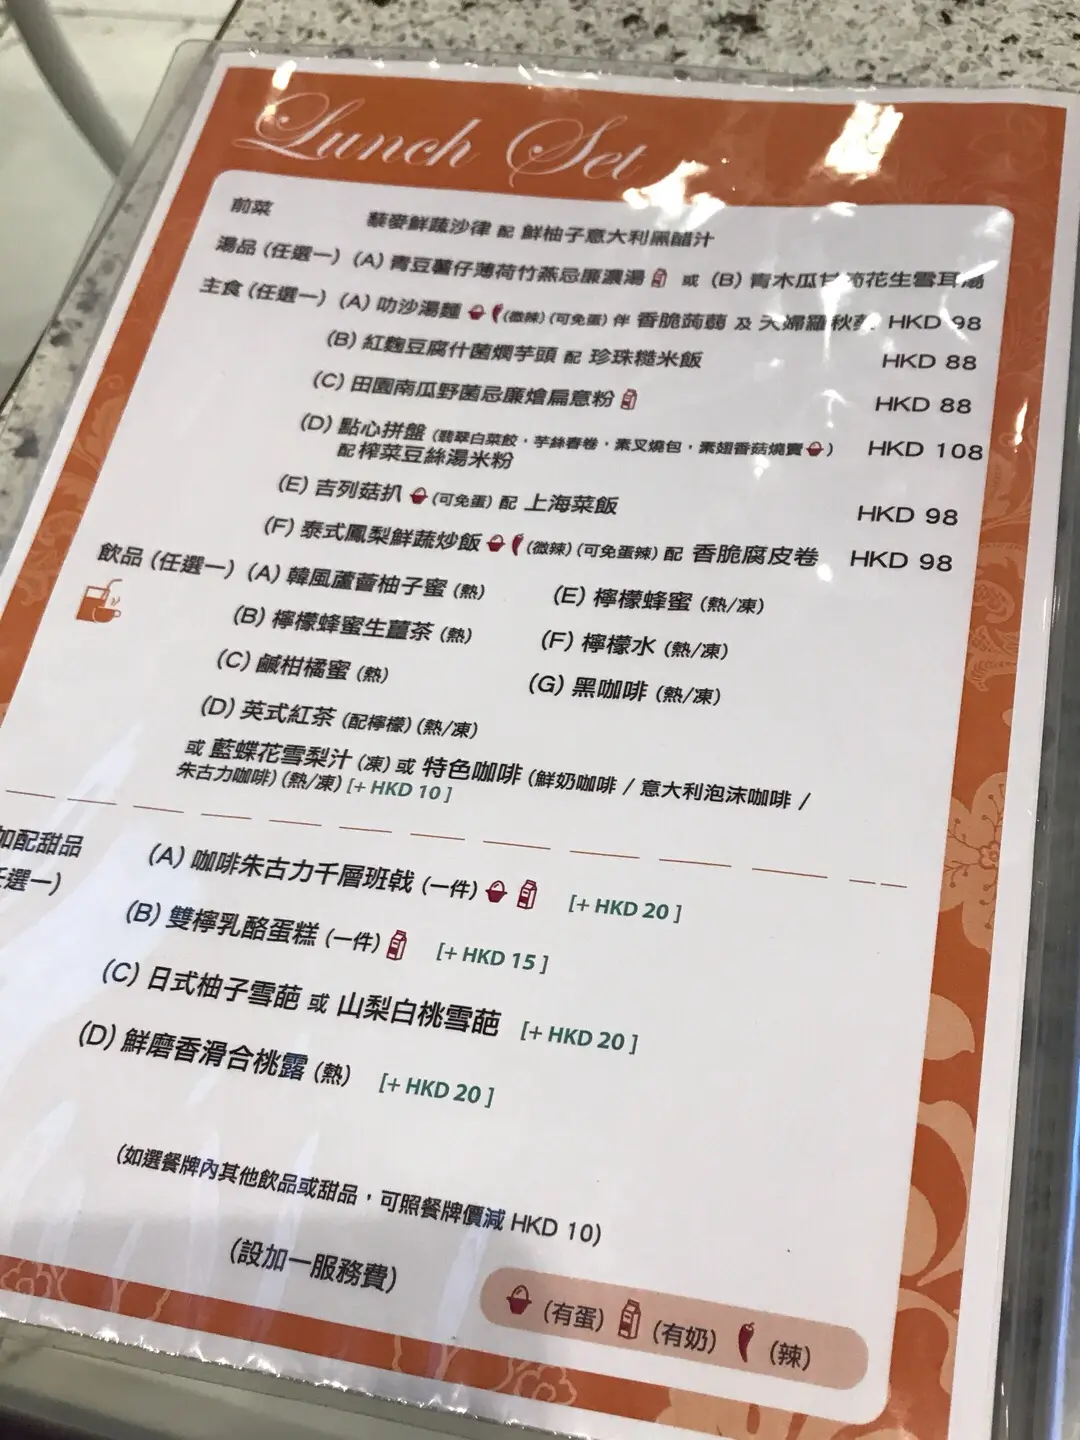 Lunch Set
前菜 藜麥鮮蔬沙律 配 鮮柚子意大利黑醋汁
湯品 (任選一) (A) 青豆薯仔薄荷竹燕忌廉濃湯 或 (B) 青木瓜甘筍花生雪耳湯
主食 (任選一) (A) 叻沙湯麵 (微辣) (可免蛋) 伴 香脆蒟蒻 及 天婦羅秋葵 HKD 98
(B) 紅麴豆腐什菌燜芋頭 配 珍珠糙米飯 HKD 88
(C) 田園南瓜野菌忌廉燴扁意粉 HKD 88
(D) 點心拼盤 (翡翠白菜餃，芋絲春卷，素叉燒包，素翅香菇燒賣) HKD 108
配榨菜豆絲湯米粉
(E) 吉列菇扒 (可免蛋) 配 上海菜飯 HKD 98
(F) 泰式鳳梨鮮蔬炒飯 (微辣) (可免蛋辣) 配 香脆腐皮卷 HKD 98
飲品 (任選一) (A) 韓風蘆薈柚子蜜 (熱) (E) 檸檬蜂蜜 (熱/凍)
(B) 檸檬蜂蜜生薑茶 (熱) (F) 檸檬水 (熱/凍)
(C) 鹹柑橘蜜 (熱) (G) 黑咖啡 (熱/凍)
(D) 英式紅茶 (配檸檬) (熱/凍)
或 藍蝶花雪梨汁 (凍) 或 特色咖啡 (鮮奶咖啡 / 意大利泡沫咖啡 /
朱古力咖啡) (熱/凍) [+ HKD 10 ]
加配甜品 (A) 咖啡朱古力千層班戟 (一件) [+ HKD 20 ]
任選一) (B) 雙檸乳酪蛋糕 (一件) [+ HKD 15 ]
(C) 日式柚子雪葩 或 山梨白桃雪葩 [+ HKD 20 ]
(D) 鮮磨香滑合桃露 (熱) [+ HKD 20 ]
(如選餐牌內其他飲品或甜品，可照餐牌價減 HKD 10)
(設加一服務費)
(有蛋) (有奶) (辣)